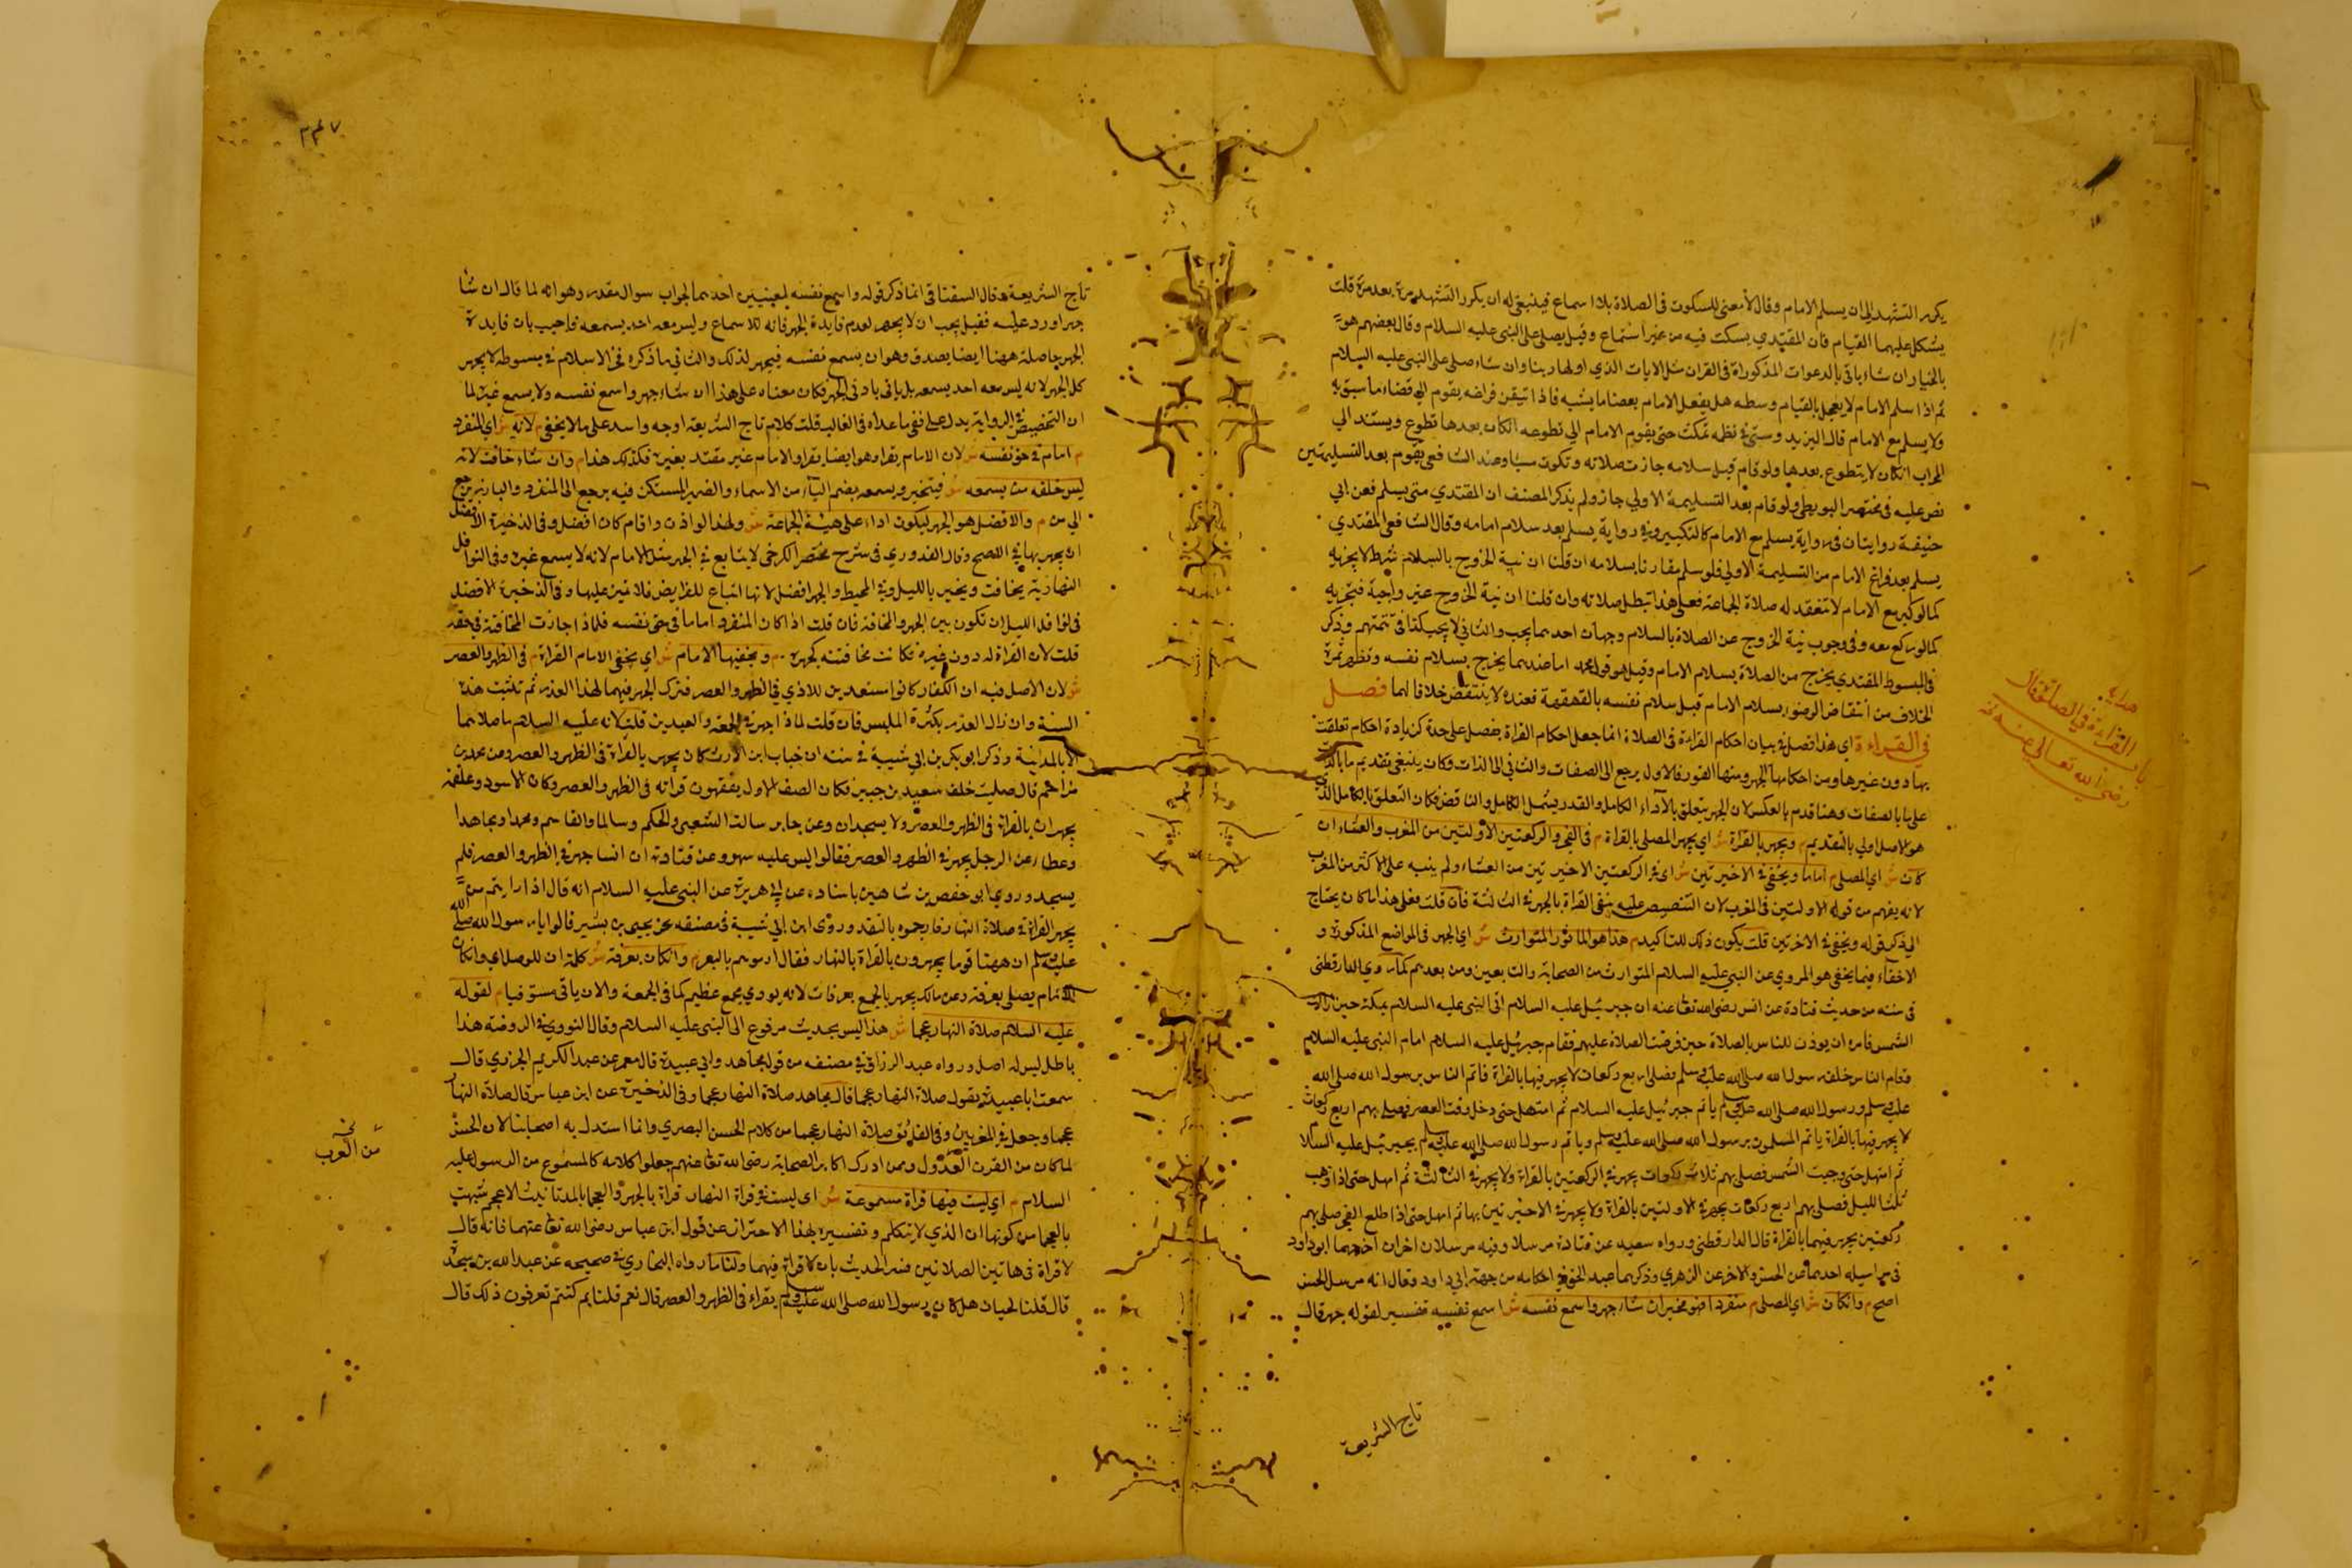 يكرر التشهد الى ان يسلم الامام وقال لا معنى للسكوت فى الصلاة بلا اسماع فينبغى له ان يكرر التشهد مرة بعد مرة قلت
يشكل عليهما القيام فان المقتدي يسكت فيه من غير استماع وقيل يصلى على النبى عليه السلام وقال بعضهم هو
بالخيار ان شاء ياتى بالدعوات المذكورة فى القران مثل الايات الذي اولها ربنا وان شاء صلى على النبى عليه السلام
ثم اذا سلم الامام لا يعجل بالقيام وسطه هل يفعل الامام بعضا ما يشبه فاذا تيقن فراغه يقوم الى قضاء ما سبق به
ولا يسلم مع الامام قال اليزيد وستى فى نظمه تمكث حتى يقوم الامام الى تطوعه ان كان بعدها تطوع ويستند الى
المحراب ان كان لا يتطوع بعدها ولو قام قبل سلامه جازت صلاته وتكون مسيا وعند الشافعى يقوم بعد التسليمتين
نص عليه فى مختصر البويطى ولو قام بعد التسليمة الاولى جاز ولم يذكر المصنف ان المقتدي متى يسلم فعن ابى
حنيفة روايتان فى رواية يسلم مع الامام كالتكبير وفى رواية يسلم بعد سلام امامه وقال الشافعى المقتدي
يسلم بعد فراغ الامام من التسليمة الاولى فلو سلم مقارنا بسلامه ان قلنا ان نية الخروج بالسلام شرط لا يجزيه
كما لو كبر مع الامام لا تنعقد له صلاة الجماعة فعلى هذا تبطل صلاته وان قلنا ان نية الخروج غير واجبة فيجزيه
كما لو ركع معه وفى وجوب نية الخروج عن الصلاة بالسلام وجهان احدهما يجب والثانى لا يجب كذا فى تتمتهم وذكر
فى المبسوط المقتدي يخرج من الصلاة بسلام الامام وقيل هو قول محمد اما عندهما يخرج بسلام نفسه وتظهر ثمرة
الخلاف من انتقاض الوضوء بسلام الامام قبل سلام نفسه بالقهقهة فعنده لا ينتقض خلافا لهما فصل
فى القراءة اي هذا فصل فى بيان احكام القراءة فى الصلاة انما جعل احكام القراة بفصل على حدة لزيادة احكام تعلقت
بها دون غيرها ومن احكامها الجهر ومنها القدر فالاول يرجع الى الصفات والثانى الى الذات وكان ينبغى تقديم ما بالذات
على ما بالصفات وهنا قدم بالعكس لان الجهر يتعلق بالاداء الكامل والقدر يشمل الكامل والناقص فكان التعلق بالكامل الذى
هو الاصل اولى بالتقديم م ويجهر بالقراة ش اي يجهر المصلى بالقراة م فى الفجر والركعتين الاوليين من المغرب والعشاء ان
كان ش اي المصلى م اماما ويخفى فى الاخيرتين ش اى فى الركعتين الاخيرتين من العشاء ولم ينبه على الاكثر من المغرب
لانه يفهم من قوله الاولتين فى المغرب لان التنصيص عليه ينفى القراة بالجهر فى الثالثة فان قلت فعلى هذا ما كان يحتاج
الى ذكر قوله ويخفى فى الاخرتين قلت يكون ذلك للتاكيد م هذا هو الماثور المتوارث ش اي الجهر فى المواضع المذكورة و
الاخفاء فيما يخفى هو المروي عن النبى عليه السلام المتوارث من الصحابة والتابعين ومن بعدهم كما روي الدارقطنى
فى سننه من حديث قتادة عن انس رضى الله تعا عنه ان جبرئيل عليه السلام اتى النبى عليه السلام بمكة حين زالت
الشمس فامره ان يوذن للناس بالصلاة حين فرضت الصلاة عليهم فقام جبرئيل عليه السلام امام النبى عليه السلام
وقام الناس خلف رسول الله صلى الله عليه وسلم فصلى اربع ركعات لا يجهر فيها بالقراة فاتم الناس برسول الله صلى الله
عليه وسلم ورسول الله صلى الله عليه وسلم ياتم جبرئيل عليه السلام ثم امتهل حتى دخل وقت العصر فصلى بهم اربع ركعات
لا يجهر فيها بالقراة ياتم المسلمون برسول الله صلى الله عليه وسلم وياتم رسول الله صلى الله عليه وسلم بجبرئيل عليه السلا
ثم امهل حتى وجبت الشمس فصلى بهم ثلاث ركعات يجهر فى الركعتين بالقراة ولا يجهر فى الثالثة ثم امهل حتى اذا ذهب
ثلث الليل فصلى بهم اربع ركعات يجهر فى الاوليين بالقراة ولا يجهر فى الاخيرتين بها ثم امهل حتى اذا طلع الفجر صلى بهم
ركعتين يجهر فيهما بالقراة قال الدارقطنى ورواه سعيد عن قتادة مرسلا وفيه مرسلان اخران اخرجهما ابو داود
فى مراسيله احدهما عن الحسن والاخر عن الزهري وذكرهما عبد الحق فى احكامه من جهة ابى داود وقال انه مرسل الحسن
اصح م وان كان ش اي المصلى م منفردا فهو مخير ان شاء جهر واسمع نفسه ش اسمع نفسه تفسير لقوله جهر قال
هدايه
باب القراءة فى الصلوة قال
رضى الله تعالى عنه
تاج الشريعة
٣٤٧
تاج الشريعة وقال السغناقى انما ذكر قوله واسمع نفسه لمعنيين احدهما لجواب سوال مقدر وهو انه لما قال ان شا
جهر اورد عليه فقيل يجب ان لا يجهر لعدم فايدة الجهر فانه للاسماع وليس معه احد يسمعه فاجيب بان فايدة
الجهر حاصلة ههنا ايضا يصدق وهو ان يسمع نفسه فيجهر لذلك والثانى ما ذكره فخر الاسلام فى مبسوطه لا يجهر
كل الجهر لانه ليس معه احد يسمعه بل ياتى بادنى الجهر فكان معناه على هذا ان شاء جهر واسمع نفسه ولا يسمع غيره لما
ان التخصيص فى الرواية يدل على نفى ما عداه فى الغالب قلت كلام تاج الشريعة اوجه واسد على ما لا يخفى م لانه ش اي المنفرد
م امام فى حق نفسه ش لان الامام يقرا وهو ايضا يقرا والامام غير مقتد بغيره فكذلك هذا م وان شاء خافت لانه
ليس خلفه من يسمعه ش فيتخير ويسمعه بضم الياء من الاسماع والضمير المستكن فيه يرجع الى المنفرد والبارز يرجع
الى من م والافضل هو الجهر ليكون اداء على هيئة الجماعة ش ولهذا لو اذن واقام كان افضل وفى الذخيرة الافضل
ان يجهر بها فى الاصح وقال القدوري فى شرح مختصر الكرخى لا يتابع فى الجهر مثل الامام لانه لا يسمع غيره وفى النوافل
النهارية يخافت ويخير بالليل وفى المحيط والجهر افضل لانها اتباع للفرايض فلا مزية عليها وفى الذخيرة الافضل
فى نوافل الليل ان تكون بين الجهر والمخافة فان قلت اذا كان المنفرد اماما فى حق نفسه فلماذا جازت المخافتة فى حقه
قلت لان القراة له دون غيره فكانت مخافتته كجهره م ويخفيها الامام ش اي يخفى الامام القراة م فى الظهر والعصر
ش لان الاصل فيه ان الكفار كانوا مستعدين للاذي فى الظهر والعصر فترك الجهر فيهما لهذا العذر ثم تثبت هذه
السنة وان زال العذر بكثرة المسلمين فان قلت لماذا جهر فى الجمعة والعيدين قلت لانه عليه السلام ما صلاهما
الا بالمدينة وذكر ابو بكر بن ابى شيبة فى سننه ان خباب ابن الارت كان يجهر بالقراة فى الظهر والعصر وعن محمد بن
مزاحم قال صليت خلف سعيد بن جبير فكان الصف الاول يفقهون قراته فى الظهر والعصر وكان الاسود وعلقمة
يجهران بالقراة فى الظهر والعصر ولا يسجدان وعن جابر سالت الشعبى والحكم وسالما والقاسم ومحمدا ومجاهدا
وعطاء عن الرجل يجهر فى الظهر والعصر فقالوا ليس عليه سهو وعن قتادة ان انسا جهر فى الظهر والعصر فلم
يسجد وروي ابو حفص بن شاهين باسناده عن ابى هريرة عن النبى عليه السلام انه قال اذا رايتم من
يجهر القراة فى صلاة النهار فارجموه بالبعر وروى ابن ابى شيبة فى مصنفه عن يحيى بن بشير قالوا يا رسول الله صلى الله
عليه وسلم ان ههنا قوما يجهرون بالقراة بالنهار فقال ارموهم بالبعر م وان كان بعرفة ش كلمة ان للوصل اي وان كان
الامام يصلى بعرفة وعن مالك يجهر بالجمع بعرفات لانه يودي بجمع عظيم كما فى الجمعة والان ياتى مستوفيا م لقوله
عليه السلام صلاة النهار عجما ش هذا ليس بحديث مرفوع الى النبى عليه السلام وقال النووي فى الروضة هذا
باطل ليس له اصل ورواه عبد الرزاق فى مصنفه من قول مجاهد وابى عبيدة قال معمر عن عبد الكريم الجزري قال
سمعت ابا عبيدة يقول صلاة النهار عجما قال مجاهد صلاة النهار عجما وفى الذخيرة عن ابن عباس قال صلاة النهار
عجما وجعل فى المغربين وفى الفائق صلاة النهار عجما من كلام الحسن البصري وانما استدل به اصحابنا لان الحسن
لما كان من القرن العدول وممن ادرك اكابر الصحابة رضى الله تعا عنهم جعلوا كلامه كالمسموع من الرسول عليه
السلام م اي ليست فيها قراة مسموعة ش اى ليست فى قراة النهار قراة بالجهر والعجما بالمد تانيث الاعجم شبهت
بالعجما من كونها ان الذي لا يتكلم وتفسيره بهذا الاحتراز عن قول ابن عباس رضى الله تعا عنهما فانه قال
لا قراة فى هاتين الصلاتين فسر الحديث بان لا قراة فيهما ولنا ما رواه البخاري فى صحيحه عن عبد الله بن سخبرة
قال قلنا لخباب هل كان رسول الله صلى الله عليه وسلم يقراء فى الظهر والعصر قال نعم قلنا بم كنتم تعرفون ذلك قال
من العرب